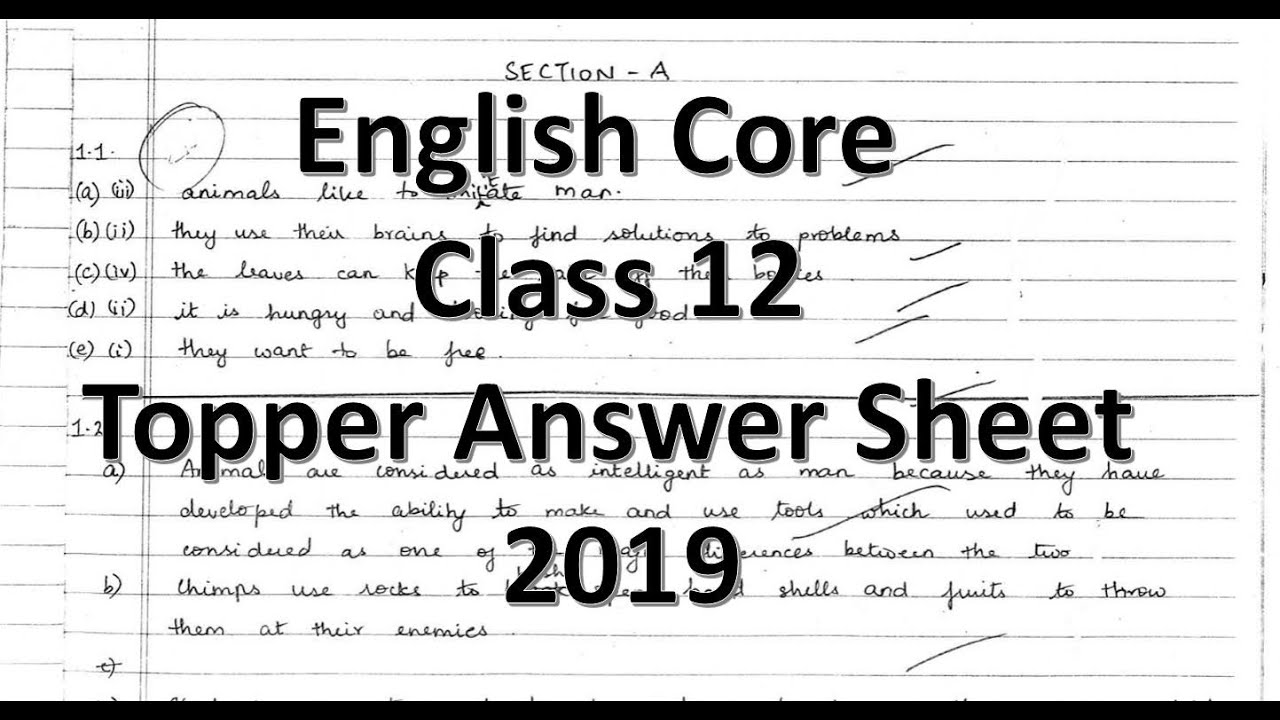 SECTION - A
English Core
1.1.
(a) (iii) animals like to man.
(b) (ii) they use their brains to find solutions to problems
Class 12
(c) (iv) the leaves can the their bodies
(d) (ii) it is hungry and
(e) (i) they want to be free.
Topper Answer Sheet
1.2
a) Animals are considered as intelligent as man because they have
developed the ability to make and use tools which used to be
considered as one of differences between the two
2019
b) Chimps use rocks to shells and fruits to throw
them at their enemies.
c)